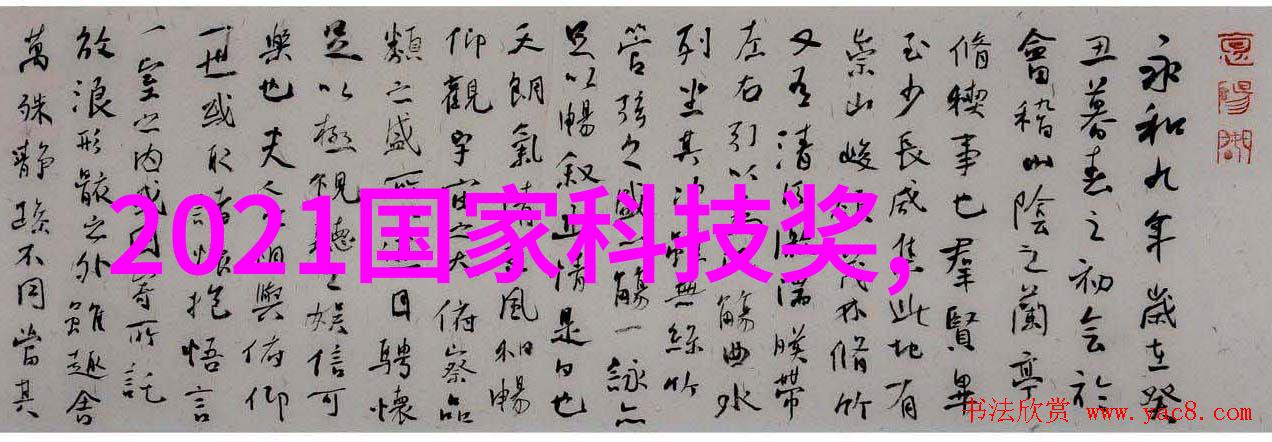 永和九年歲在癸
丑暮春之初会於
會稽山陰之蘭亭
脩稧事也羣賢畢
至少長咸集此地有
崇山峻茂林脩竹
又有清流激湍暎帶
左右引以觴曲水
列坐其次雖無絲竹
管弦之盛一觴一詠亦
足以暢叙幽情是日也
天朗氣清風和暢
仰觀宇宙之大俯察品
類之盛所目騁懷
足以極視聽之娱信可
樂也夫人之相與俯仰
一世或取諸懷抱悟言
一室之内或因寄所託
放浪形骸之外雖趣舍
萬殊静躁不同當其
2021国家科技奖，
书法欣赏
www.yac8.com